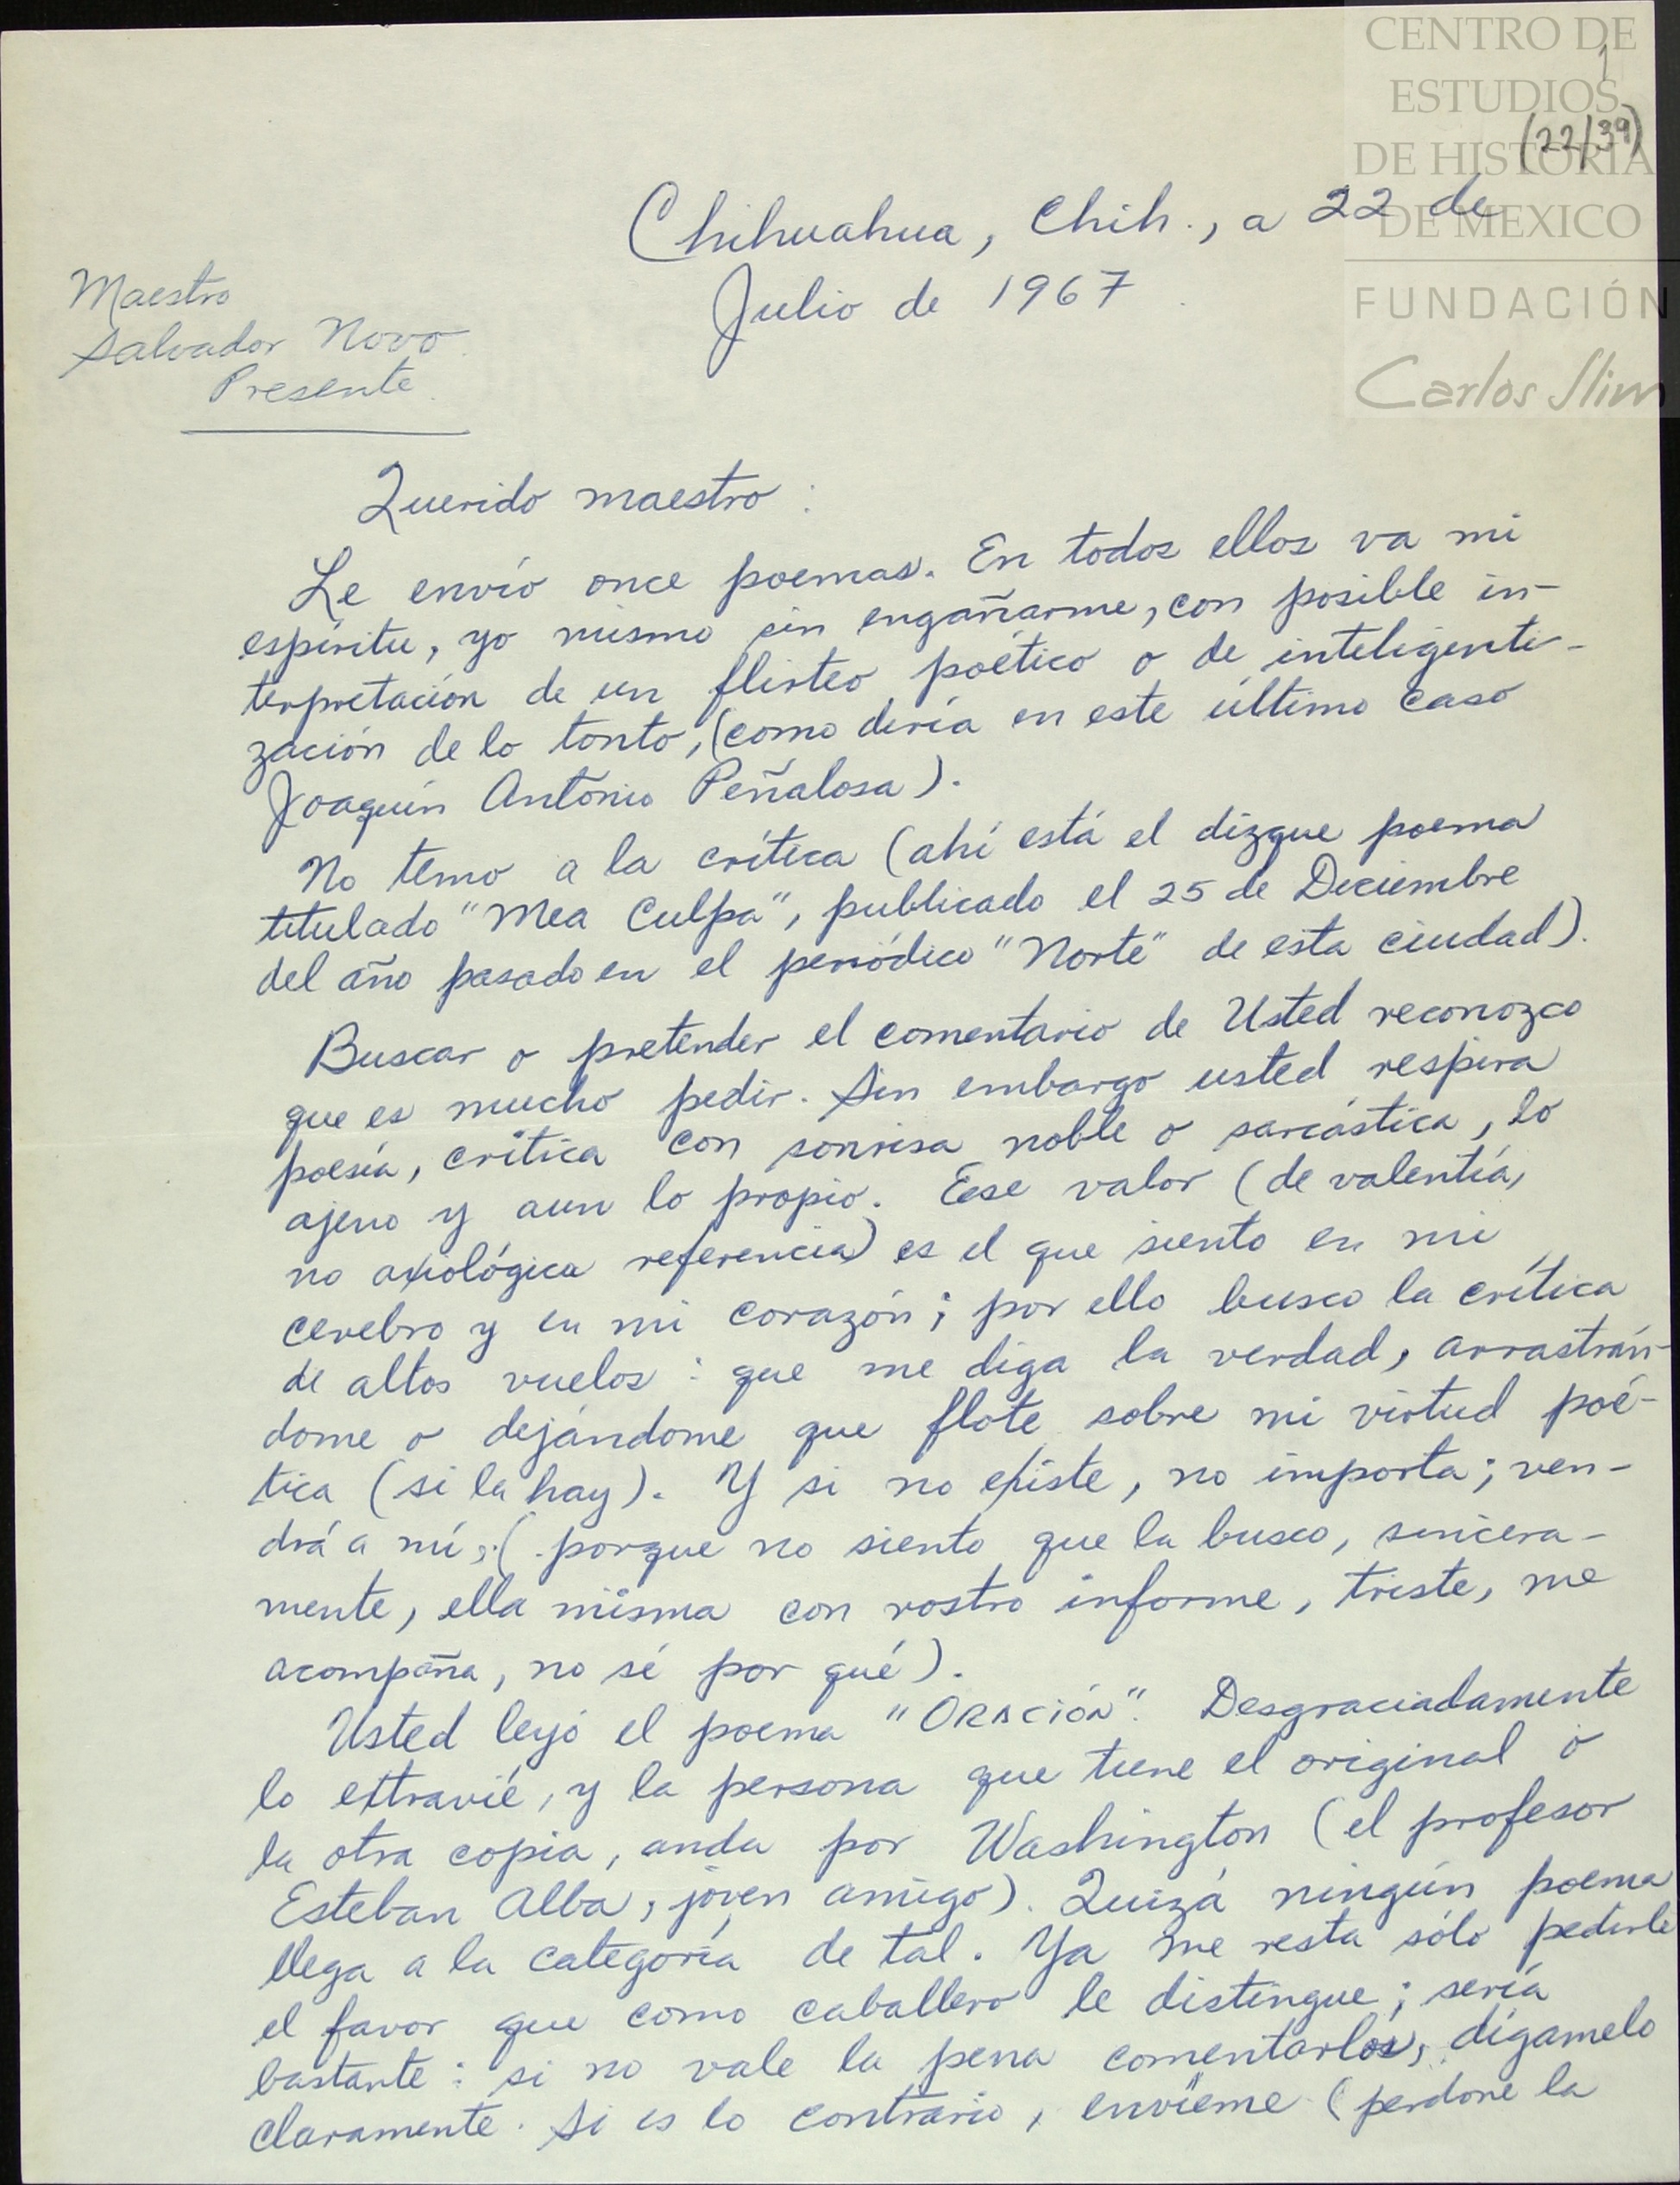 CENTRO DE
ESTUDIOS
DE HISTORIA
DE MEXICO
FUNDACIÓN
Carlos Slim
1
(22/39)
Chihuahua, Chih., a 22 de
Julio de 1967.
Maestro
Salvador Novo.
Presente.
Querido maestro:
Le envío once poemas. En todos ellos va mi
espíritu, yo mismo sin engañarme, con posible in-
terpretación de un flirteo poético o de inteligenti-
zación de lo tonto, (como diría en este último caso
Joaquín Antonio Peñalosa).
No temo a la crítica (ahí está el dizque poema
titulado "Mea Culpa", publicado el 25 de Diciembre
del año pasado en el periódico "Norte" de esta ciudad).
Buscar o pretender el comentario de Usted reconozco
que es mucho pedir. Sin embargo usted respira
poesía, crítica con sonrisa noble o sarcástica, lo
ajeno y aun lo propio. Ese valor (de valentía,
no axiológica referencia) es el que siento en mi
cerebro y en mi corazón; por ello busco la crítica
de altos vuelos: que me diga la verdad, arrastrán-
dome o dejándome que flote sobre mi virtud poé-
tica (si la hay). Y si no existe, no importa; ven-
drá a mí, (porque no siento que la busco, sincera-
mente, ella misma con rostro informe, triste, me
acompaña, no sé por qué).
Usted leyó el poema "ORACIÓN". Desgraciadamente
lo extravié, y la persona que tiene el original o
la otra copia, anda por Washington (el profesor
Esteban Alba, joven amigo). Quizá ningún poema
llega a la categoría de tal. Ya me resta sólo pedirle
el favor que como caballero le distingue; sería
bastante: si no vale la pena comentarlos, dígamelo
claramente. Si es lo contrario, envíeme (perdone la